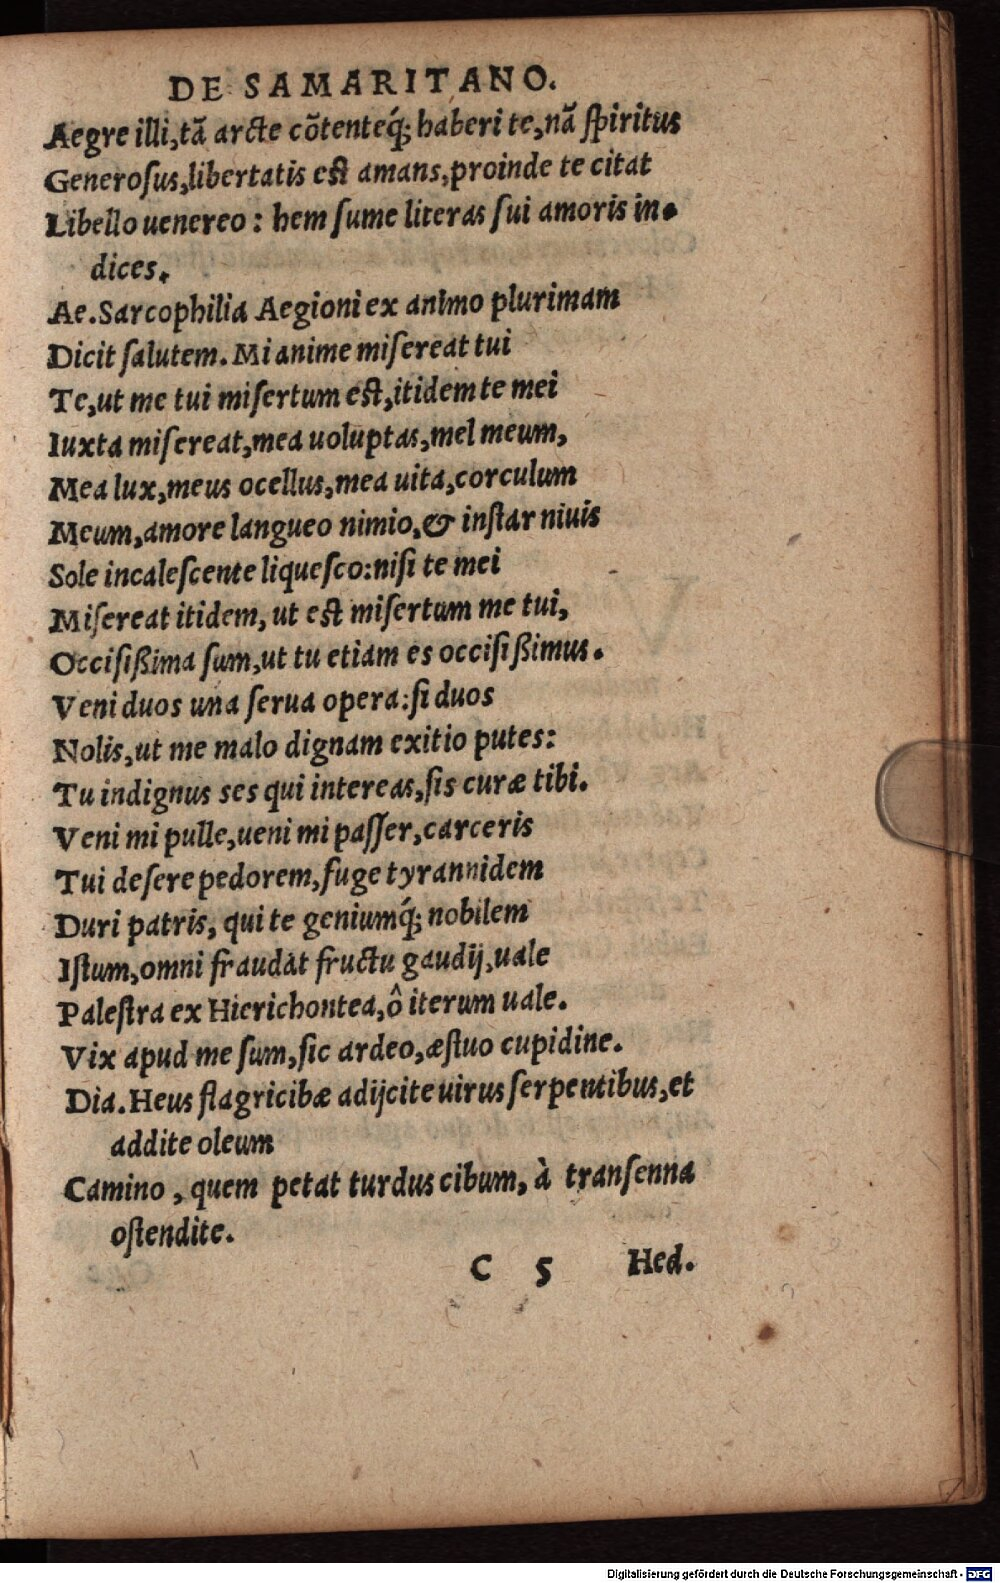 DE SAMARITANO.
Aegre illi,tã arcte cõtenteq́; haberi te,nã ſpiritus
Generoſus,libertatis eſt amans,proinde te citat
Libello uenereo: hem ſume literas ſui amoris in-
dices.
Ae.Sarcophilia Aegioni ex animo plurimam
Dicit ſalutem. Mi anime miſereat tui
Te,ut me tui miſertum eſt,itidem te mei
Iuxta miſereat,mea uoluptas,mel meum,
Mea lux,meus ocellus,mea uita,corculum
Meum,amore langueo nimio,& inſtar niuis
Sole incaleſcente liqueſco:niſi te mei
Miſereat itidem, ut eſt miſertum me tui,
Occiſißima ſum,ut tu etiam es occiſißimus.
Veni duos una ſerua opera:ſi duos
Nolis,ut me malo dignam exitio putes:
Tu indignus ses qui intereas,ſis curæ tibi.
Veni mi pulle,ueni mi paſſer,carceris
Tui deſere pedorem,fuge tyrannidem
Duri patris, qui te geniumq́; nobilem
Iſtum,omni fraudat fructu gaudij,uale
Paleſtra ex Hierichontea,ô iterum uale.
Vix apud me ſum,ſic ardeo,æſtuo cupidine.
Dia.Heus flagricibæ adijcite uirus ſerpentibus,et
addite oleum
Camino, quem petat turdus cibum, à tranſenna
oſtendite.
C 5 Hed.
Digitalisierung gefördert durch die Deutsche Forschungsgemeinschaft - DFG